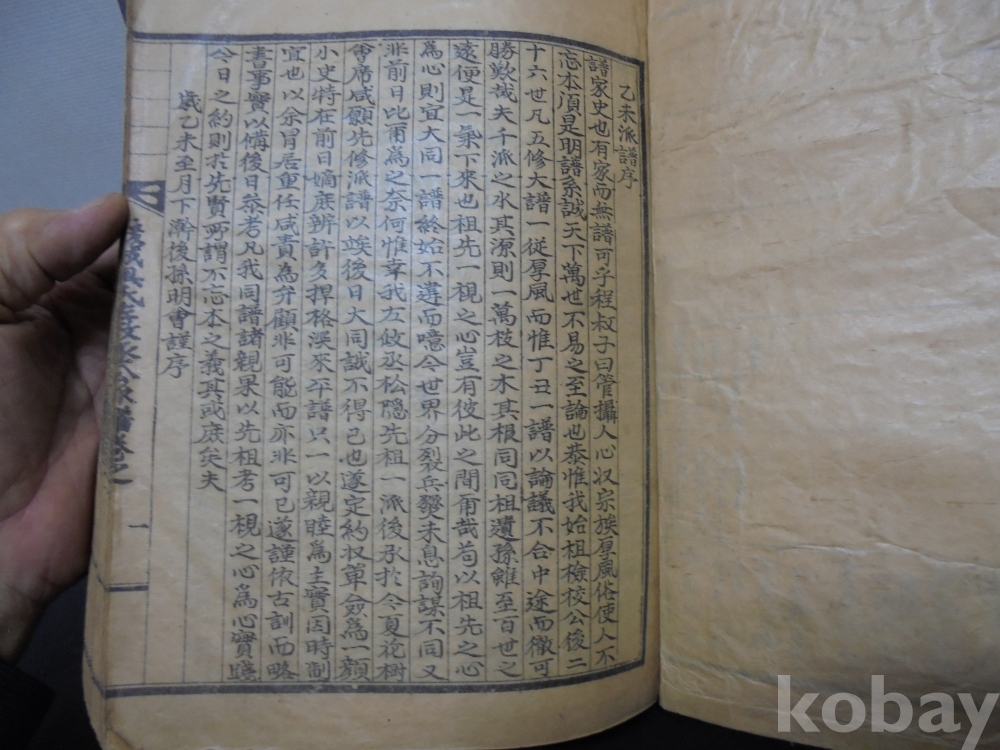 乙未派譜序
譜家史也有家而無譜可乎程叔子曰管攝人心收宗族厚風俗使人不
忘本須是明譜系誠天下萬世不易之至論也恭惟我始祖檢校公後二
十六世凡五修大譜一從厚風而惟丁丑一譜以論議不合中途而徹可
勝歎哉夫千派之水其源則一萬枝之木其根同同祖遺孫雖至百世之
遠便是一氣下來也祖先一視之心豈有彼此之間爾哉苟以祖先之心
為心則宜大同一譜終始不違而噫今世界分裂兵發未息詢謀不同又
非前日比爾為之奈何惟幸我左 丞松隱先祖一派後承於今夏花樹
會席咸願先修派譜以竢後日大同誠不得已也遂定約收單僉為一顔
小史特在前日嫡庶辨許多捍格渙來平譜只一以親睦為主實因時制
宜也以余冒居重任咸責為弁顧非可能而亦非可已遂謹依古訓而略
書事實以備後日叅考凡我同譜諸親果以先祖考一視之心為心實踐
今日之約則於先賢所謂不忘本之義其或庶矣夫
歲乙未至月下澣後孫明會謹序
一
kobay